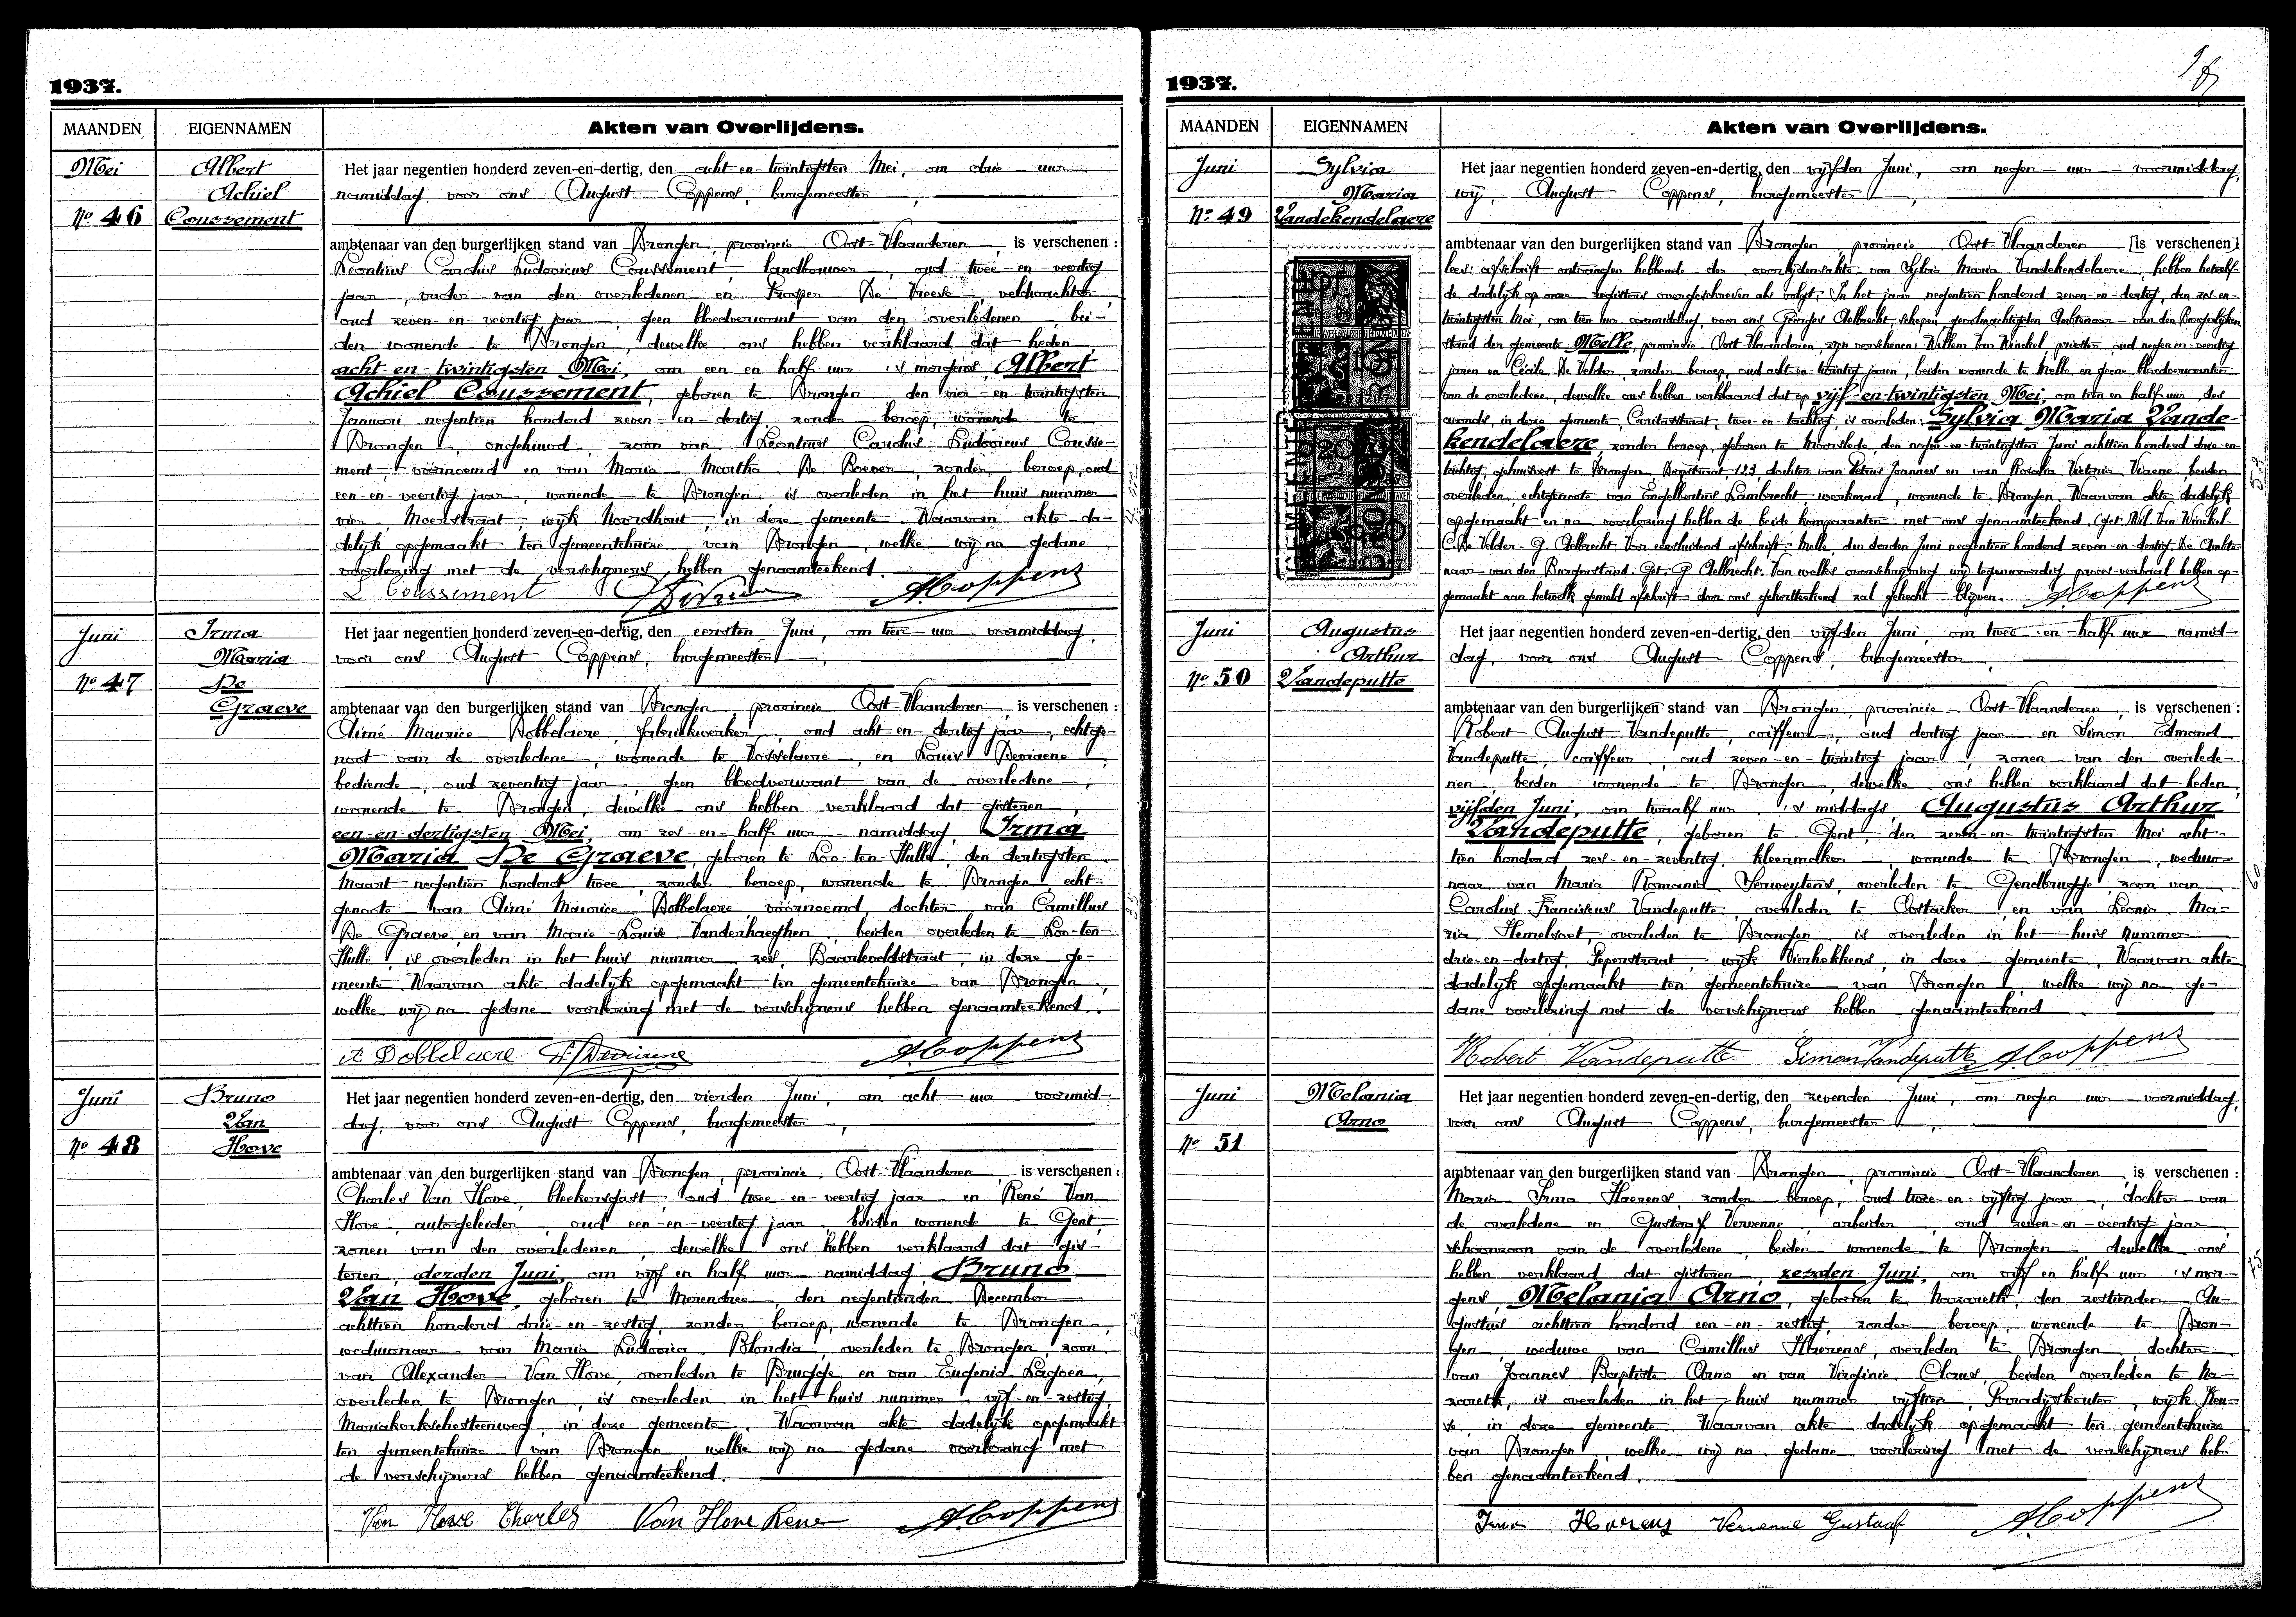 1937.
MAANDEN EIGENNAMEN Akten van Overlijdens.
Mei
Nº 46
Albert
Achiel
Coussement
Het jaar negentien honderd zeven-en-dertig, den acht-en-twintigsten Mei, om drie uur
namiddag, voor ons August Coppens, burgemeester,
ambtenaar van den burgerlijken stand van Drongen, provincie Oost-Vlaanderen, is verschenen:
Leontius Carolus Ludovicus Coussement, landbouwer, oud twee-en-veertig
jaar, vader van den overledenen en Prosper De Vreese, veldwachter,
oud zeven-en-veertig jaar, geen bloedverwant van den overledenen, bei-
den wonende te Drongen, dewelke ons hebben verklaard dat heden,
acht-en-twintigsten Mei, om een en half uur 's morgens, Albert
Achiel Coussement, geboren te Drongen den vier-en-twintigsten
Januari negentien honderd zeven-en-dertig, zonder beroep, wonende te
Drongen, ongehuwd, zoon van Leontius Carolus Ludovicus Cousse-
ment, voornoemd en van Maria Martha De Boever, zonder beroep, oud
een-en-veertig jaar, wonende te Drongen is overleden in het huis nummer
vier, Moerstraat, wijk Noordhout, in deze gemeente. Waarvan akte da-
delijk opgemaakt ten gemeentehuize van Drongen, welke wij na gedane
voorlezing met de verschijners hebben genaamteekend.
L Coussement A. Coppens
Juni
Nº 47
Irma
Maria
De
Graeve
Het jaar negentien honderd zeven-en-dertig, den eersten Juni, om tien uur voormiddag,
voor ons August Coppens, burgemeester,
ambtenaar van den burgerlijken stand van Drongen, provincie Oost-Vlaanderen, is verschenen:
Aimé Maurice Dobbelaere, fabriekwerker, oud acht-en-dertig jaar, echtge-
noot van de overledene, wonende te Vosselaere, en Louis Deviaene,
bediende, oud zeventig jaar, geen bloedverwant van de overledene,
wonende te Drongen, dewelke ons hebben verklaard dat gisteren,
een-en-dertigsten Mei, om zes-en-half uur namiddag, Irma
Maria De Graeve, geboren te Loo-ten-Hulle, den dertigsten
Maart negentien honderd twee, zonder beroep, wonende te Drongen, echt-
genoote van Aimé Maurice Dobbelaere, voornoemd, dochter van Camillus
De Graeve, en van Marie-Louise Vanderhaeghen, beiden overleden te Loo-ten-
Hulle, is overleden in het huis nummer zes, Baarleveldstraat, in deze ge-
meente. Waarvan akte dadelijk opgemaakt ten gemeentehuize van Drongen,
welke wij na gedane voorlezing met de verschijners hebben genaamteekend.
A Dobbelaere L. Deviaene A. Coppens
Juni
Nº 48
Bruno
Van
Hove
Het jaar negentien honderd zeven-en-dertig, den vierden Juni, om acht uur voormid-
dag, voor ons August Coppens, burgemeester,
ambtenaar van den burgerlijken stand van Drongen, provincie Oost-Vlaanderen, is verschenen:
Charles Van Hove, bleekersgast, oud twee-en-veertig jaar en René Van
Hove, autogeleider, oud een-en-veertig jaar, beiden wonende te Gent,
zonen van den overledenen, dewelke ons hebben verklaard dat gis-
teren, derden Juni, om vijf en half uur namiddag, Bruno
Van Hove, geboren te Merendree, den negentienden December
achttien honderd drie-en-zestig, zonder beroep, wonende te Drongen,
weduwnaar van Maria Ludovica Blondia, overleden te Drongen, zoon
van Alexander Van Hove, overleden te Brugge en van Eugenia Lagoen,
overleden te Drongen, is overleden in het huis nummer vijf-en-zestig,
Mariakerkschesteenweg, in deze gemeente. Waarvan akte dadelijk opgemaakt
ten gemeentehuize van Drongen, welke wij na gedane voorlezing met
de verschijners hebben genaamteekend.
Van Hove Charles Van Hove Rene A. Coppens
1937.
MAANDEN EIGENNAMEN Akten van Overlijdens.
Juni
Nº 49
Sylvia
Maria
Vandekendelaere
Het jaar negentien honderd zeven-en-dertig, den vijfden Juni, om negen uur voormiddag,
wij, August Coppens, burgemeester,
ambtenaar van den burgerlijken stand van Drongen, provincie Oost-Vlaanderen [is verschenen]
lees: afschrift ontvangen hebbende der overlijdensakte van Sylvia Maria Vandekendelaere, hebben hetzelf-
de dadelijk op onze registers overgeschreven als volgt: In het jaar negentien honderd zeven-en-dertig, den zes-en-
twintigsten Mei, om tien uur voormiddag, voor ons Georges Aelbrecht, schepen, gevolmachtigden Ambtenaar van den Burgerlijken
stand der gemeente Melle, provincie Oost-Vlaanderen, zijn verschenen: Willem Van Winckel priester, oud negen-en-veertig
jaren en Cécile De Velder, zonder beroep, oud acht-en-twintig jaren, beiden wonende te Melle, en geene bloedverwanten
van de overledene, dewelke ons hebben verklaard dat op vijf-en-twintigsten Mei, om tien en half uur, des
avonds, in deze gemeente, Caritasstraat, twee-en-tachtig, is overleden: Sylvia Maria Vande-
kendelaere, zonder beroep, geboren te Moorslede, den negen-en-twintigsten Juni achttien honderd drie-en-
tachtig, gehuisvest te Drongen, 123, dochter van Petrus Joannes en van Rosalia Victoria Vierene, beiden
overleden, echtgenoote van Engelbertus Lambrecht, werkman, wonende te Drongen. Waarvan akte dadelijk
opgemaakt en na voorlezing hebben de beide komparanten met ons genaamteekend. (get.) Wil. Van Winckel-
C. De Velder - G. Aelbrecht. Voor eensluidend afschrift: Melle, den derden Juni negentien honderd zeven-en-dertig. De Ambte-
naar van den Burgerstand. Get. G. Aelbrecht. Van welke overschrijving wij tegenwoordig proces-verbaal hebben op-
gemaakt aan hetwelk gemeld afschrift door ons gehandteekend zal gehecht blijven. A. Coppens
Juni
Nº 50
Augustus
Arthur
Vandeputte
Het jaar negentien honderd zeven-en-dertig, den vijfden Juni, om twee-en-half uur namid-
dag, voor ons August Coppens, burgemeester,
ambtenaar van den burgerlijken stand van Drongen, provincie Oost-Vlaanderen, is verschenen:
Robert August Vandeputte, coiffeur, oud dertig jaar en Simon Edmond
Vandeputte, coiffeur, oud zeven-en-twintig jaar, zonen van den overlede-
nen, beiden wonende te Drongen, dewelke ons hebben verklaard dat heden,
vijfden Juni, om twaalf uur 's middags, Augustus Arthur
Vandeputte, geboren te Gent, den zeven-en-twintigsten Mei acht-
tien honderd zes-en-zeventig, kleermaker, wonende te Drongen, weduw-
naar van Maria Romania Serweytens, overleden te Gendbrugge, zoon van
Carolus Franciscus Vandeputte, overleden te Oostacker en van Leonia Ma-
ria Hemelsoet, overleden te Drongen is overleden in het huis nummer
drie-en-dertig, Peperstraat, wijk Vierhekkens, in deze gemeente. Waarvan akte
dadelijk opgemaakt ten gemeentehuize van Drongen, welke wij na ge-
dane voorlezing met de verschijners hebben genaamteekend.
Robert Vandeputte Simon Vandeputte A. Coppens
Juni
Nº 51
Melania
Arno
Het jaar negentien honderd zeven-en-dertig, den zevenden Juni, om negen uur voormiddag,
voor ons August Coppens, burgemeester,
ambtenaar van den burgerlijken stand van Drongen, provincie Oost-Vlaanderen, is verschenen:
Maria Irma Haerens, zonder beroep, oud twee-en-vijftig jaar, dochter van
de overledene en Gustaaf Vervenne, arbeider, oud zeven-en-veertig jaar,
schoonzoon van de overledene, beiden wonende te Drongen, dewelke ons
hebben verklaard dat gisteren, zesden Juni, om vijf en half uur 's mor-
gens, Melania Arno, geboren te Nazareth, den zestienden Au-
gustus achttien honderd een-en-zestig, zonder beroep, wonende te Dron-
gen, weduwe van Camillus Haerens, overleden te Drongen, dochter
van Joannes Baptiste Arno en van Virginie Claus, beiden overleden te Na-
zareth, is overleden in het huis nummer vijftien, Paradijskouter, wijk
in deze gemeente. Waarvan akte dadelijk opgemaakt ten gemeentehuize
van Drongen, welke wij na gedane voorlezing met de verschijners heb-
ben genaamteekend.
Irma Haerens Vervenne Gustaaf A. Coppens